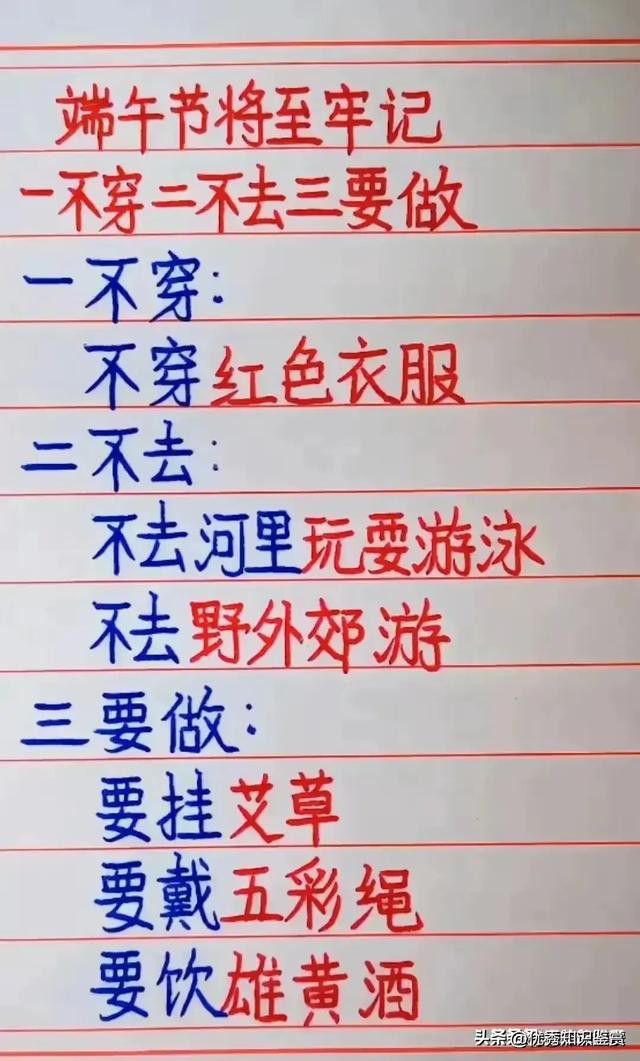 端午节将至牢记
一不穿二不去三要做
一不穿：
不穿红色衣服
二不去：
不去河里玩耍游泳
不去野外郊游
三要做：
要挂艾草
要戴五彩绳
要饮雄黄酒